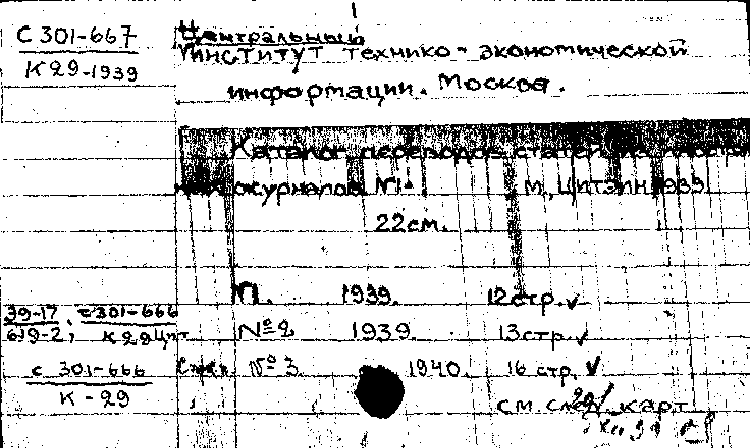 С 301-667
К29-1939
Центральный
институт технико-экономической
информации. Москва.
Каталог переводов статей из иностран
ных журналов № М., ЦИТЭИН 1939
22 см.
1939. 12 стр. ✓
39-17 ; с301-666
619-2; К29 Цит
№ 2 1939. 13 стр. ✓
с 301-666
К-29
№ 3 1940. 16 стр. ✓
см. след. карт